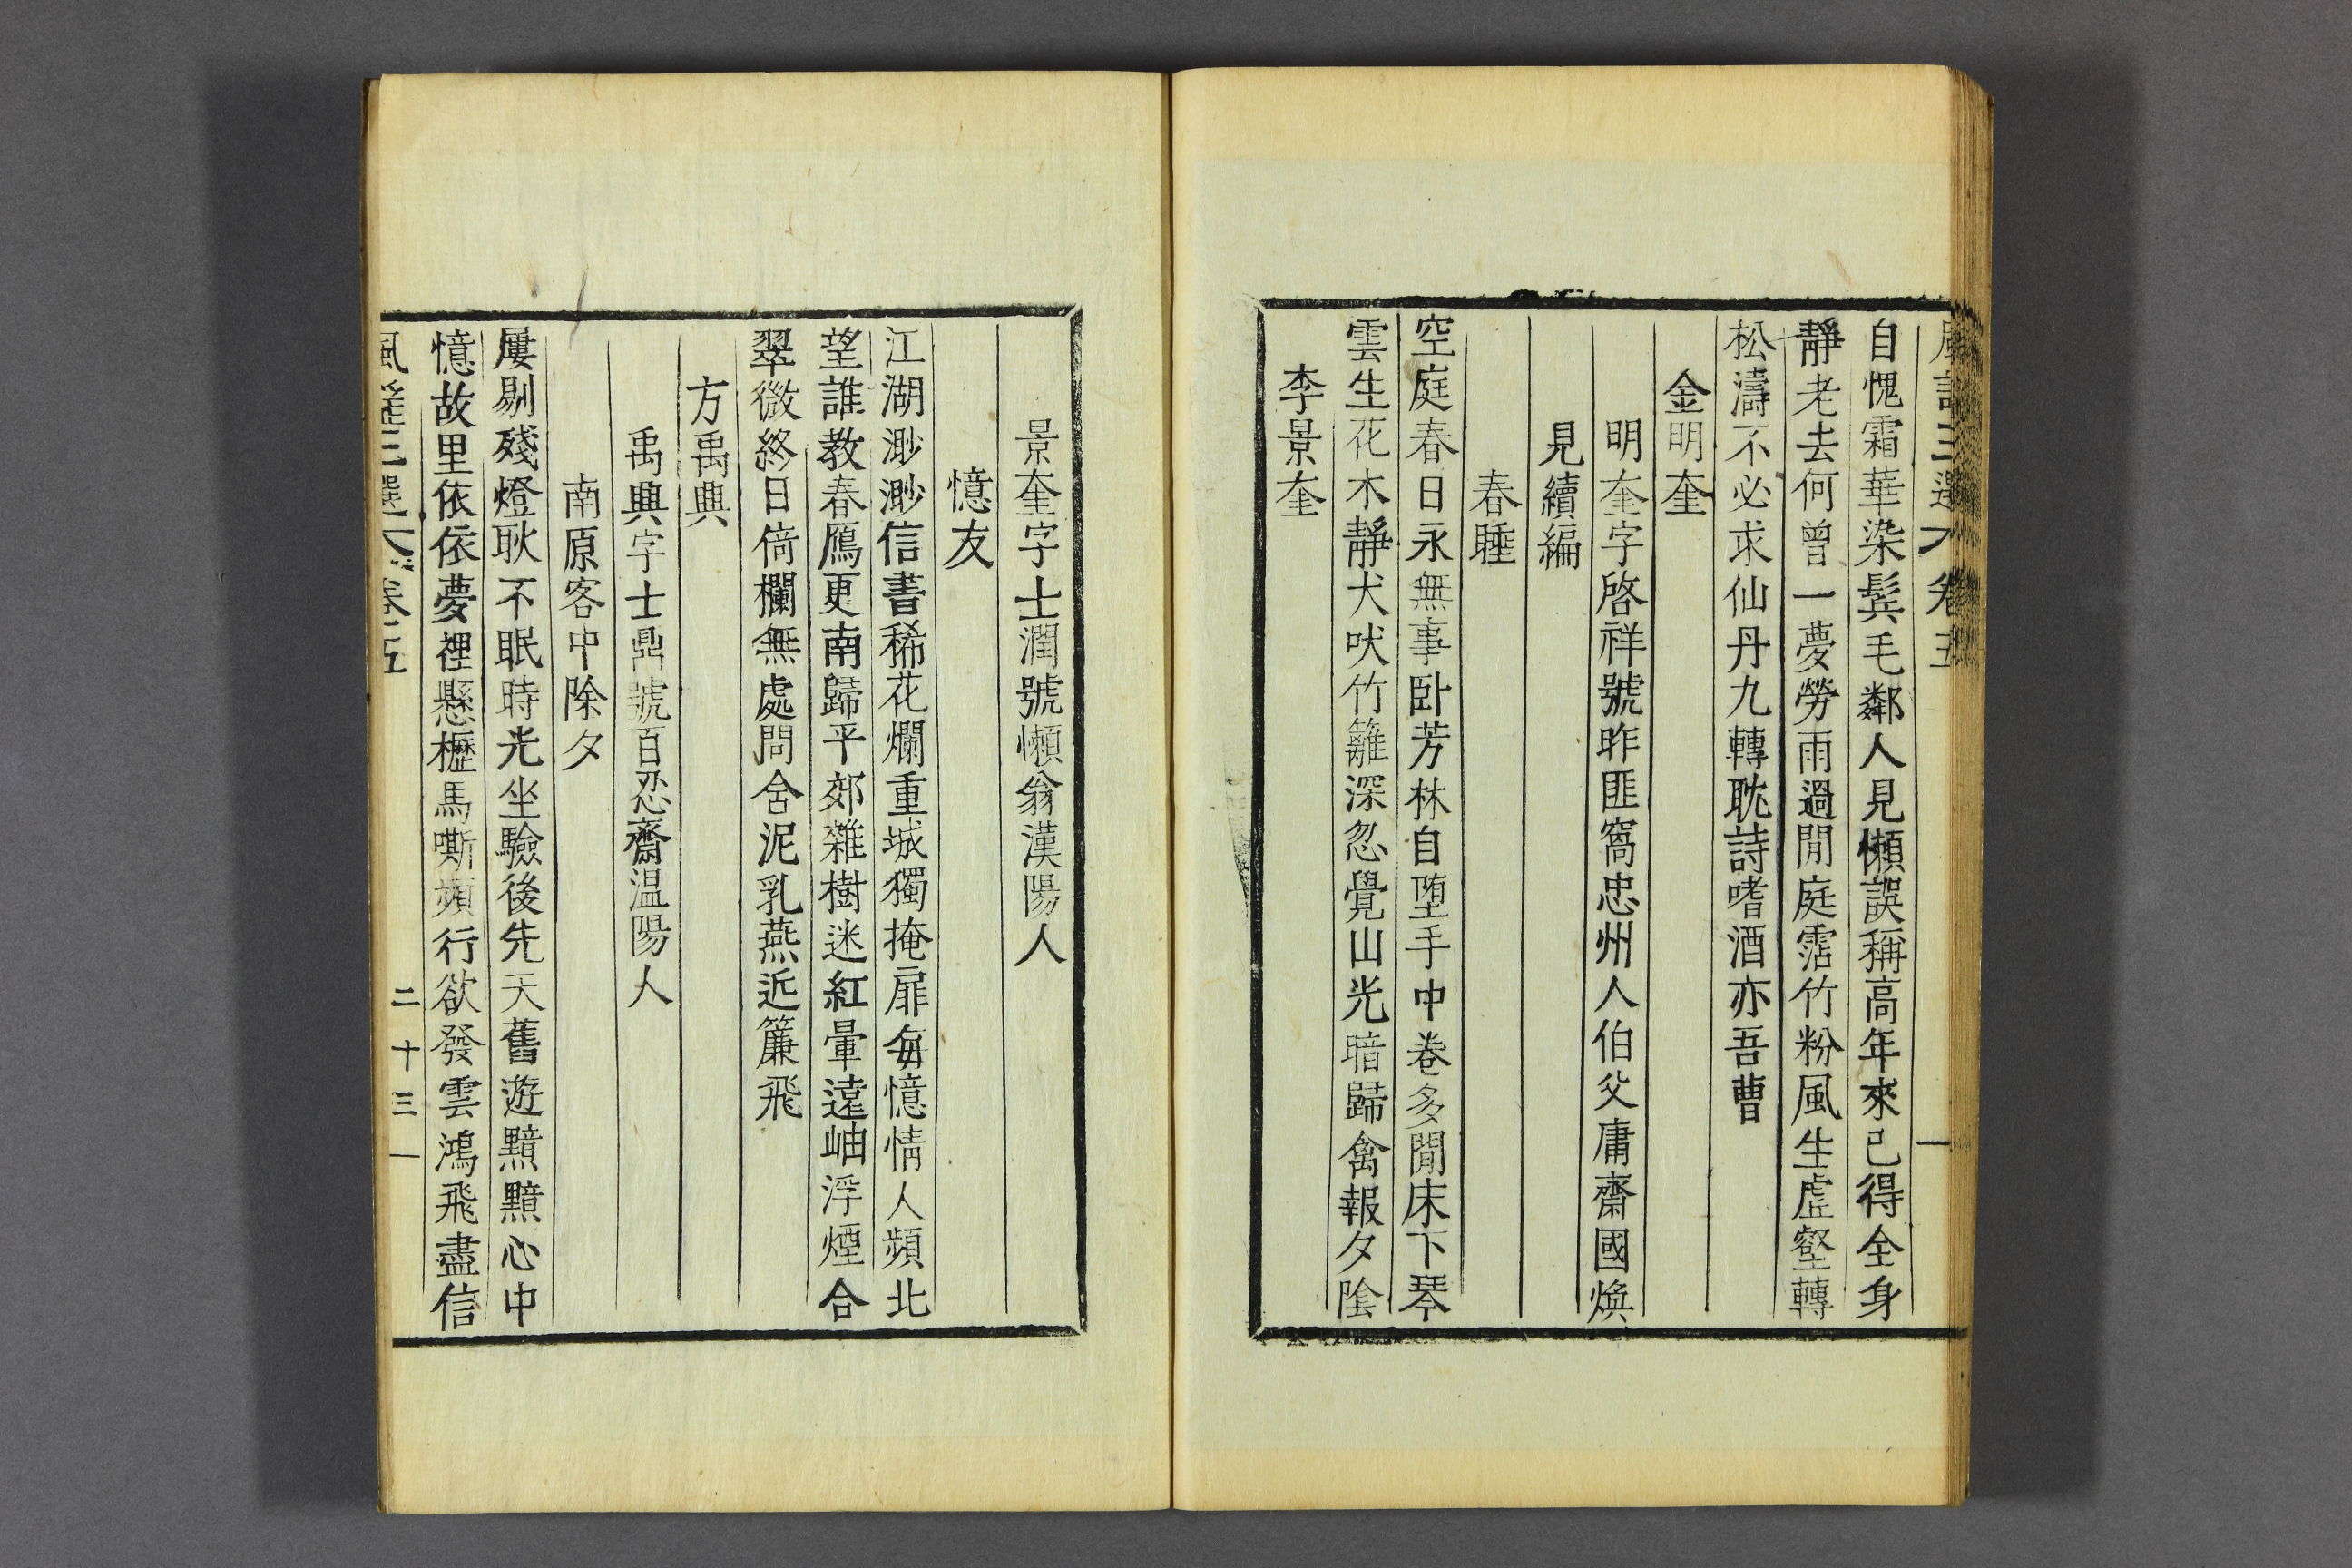 風謠三選 卷五
自愧霜華染鬂毛鄰人見懶誤稱高年來已得全身
靜老去何曾一夢勞雨過閒庭霑竹粉風生虛壑轉
松濤不必求仙丹九轉耽詩嗜酒亦吾曹
金明奎
明奎字啓祥號昨匪窩忠州人伯父庸齋國煥
見續編
春睡
空庭春日永無事臥芳林自堕手中卷多閒床下琴
雲生花木靜犬吠竹籬深忽覺山光暗歸禽報夕陰
李景奎
景奎字士潤號懶翁漢陽人
憶友
江湖渺渺信書稀花爛重城獨掩扉每憶情人頻北
望誰教春鴈更南歸平郊雜樹迷紅暈遠岫浮煙合
翠微終日倚欄無處問含泥乳燕近簾飛
方禹典
禹典字士鼎號百忍齋温陽人
南原客中除夕
屢剔殘燈耿不眠時光坐驗後先天舊遊黯黯心中
憶故里依依夢裡懸櫪馬嘶頻行欲發雲鴻飛盡信
風謠三選 卷五 二十三